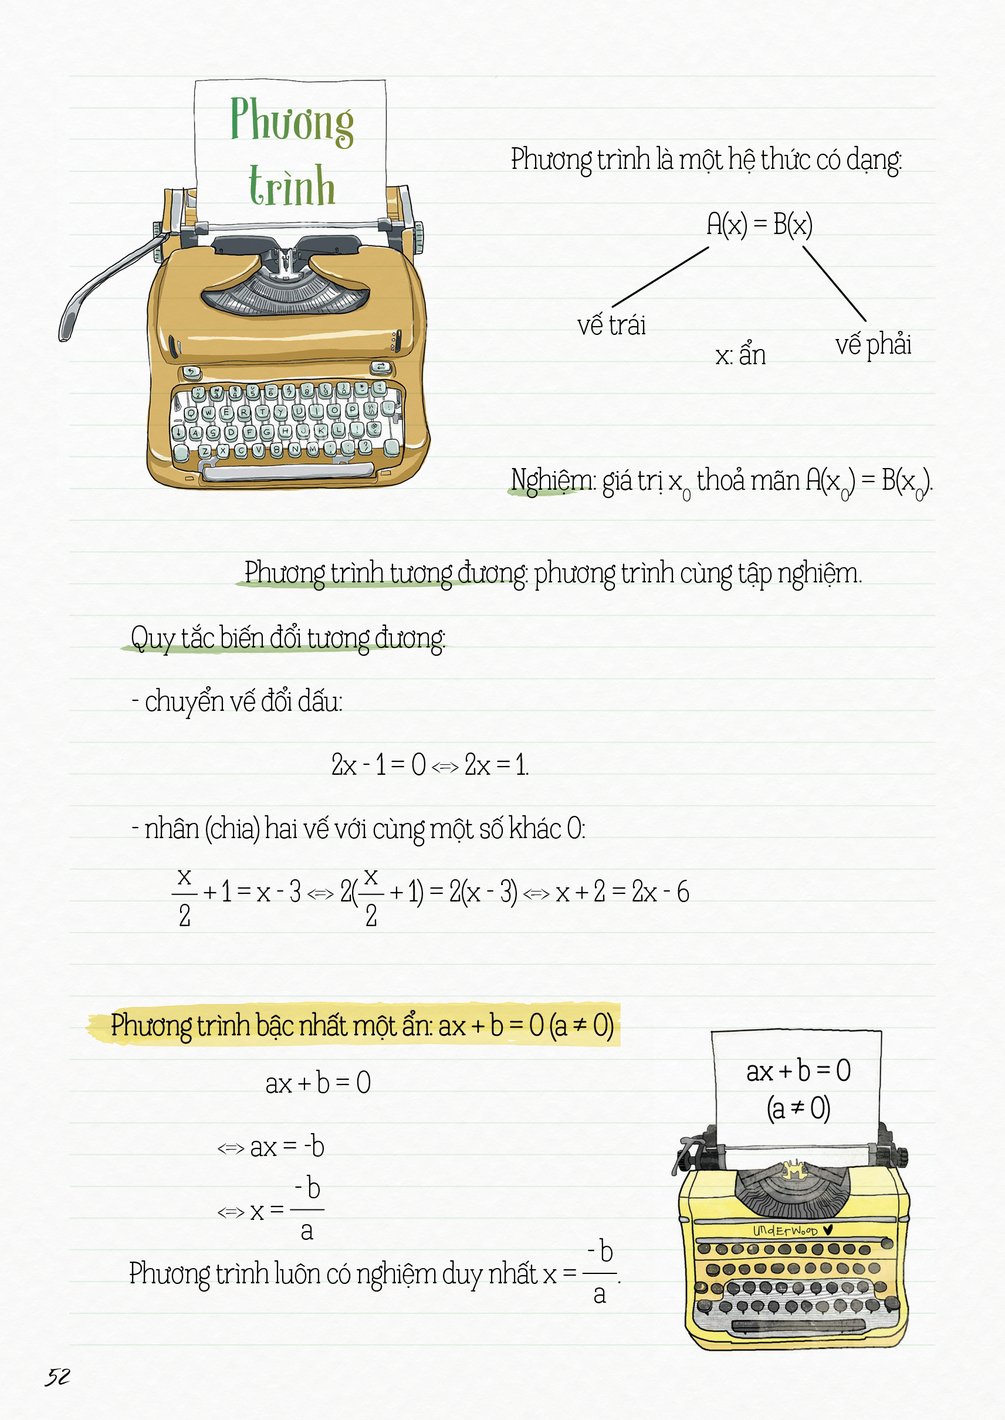 Phương
trình
Phương trình là một hệ thức có dạng:
A(x) = B(x)
vế trái
x: ẩn
vế phải
Nghiệm: giá trị x₀ thoả mãn A(x₀) = B(x₀).
Phương trình tương đương: phương trình cùng tập nghiệm.
Quy tắc biến đổi tương đương:
- chuyển vế đổi dấu:
2x - 1 = 0 <=> 2x = 1.
- nhân (chia) hai vế với cùng một số khác 0:
x/2 + 1 = x - 3 <=> 2(x/2 + 1) = 2(x - 3) <=> x + 2 = 2x - 6
Phương trình bậc nhất một ẩn: ax + b = 0 (a ≠ 0)
ax + b = 0
<=> ax = -b
<=> x = -b/a
Phương trình luôn có nghiệm duy nhất x = -b/a.
ax + b = 0
(a ≠ 0)
UndERWOOD
52